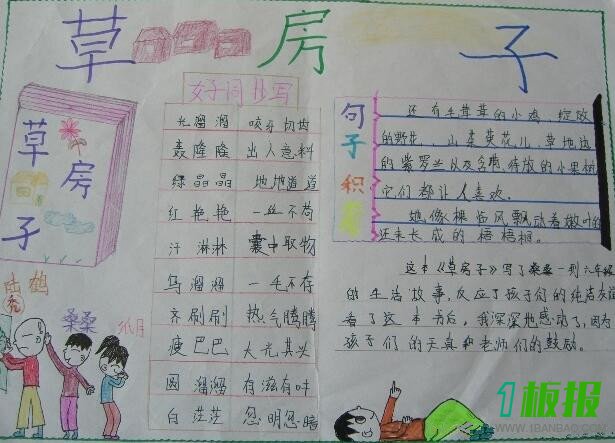 草房子
草
房
子
陆鹤
秃
桑桑
纸月
好词书写
光溜溜 咬牙切齿
轰隆隆 出人意料
绿晶晶 地地道道
红艳艳 一丝不苟
汗淋淋 囊中取物
乌溜溜 一毛不存
齐刷刷 热气腾腾
疲巴巴 大光其火
圆溜溜 有滋有味
白茫茫 忽明忽暗
句子积
还有毛茸茸的小鸡,绽放
的野花,山菜黄花儿,草地边
的紫罗兰以及含苞待放的小果树
它们都让人喜欢。
她像棵临风飘动着嫩叶的
还未长成的梧桐树。
这本《草房子》写了桑桑一到六年级
的生活故事,反应了孩子们的纯洁友谊
看了这本书后,我深深地感动了,因为
孩子们的天真和老师们的鼓励。
1板报
WWW.1BANBAO.COM